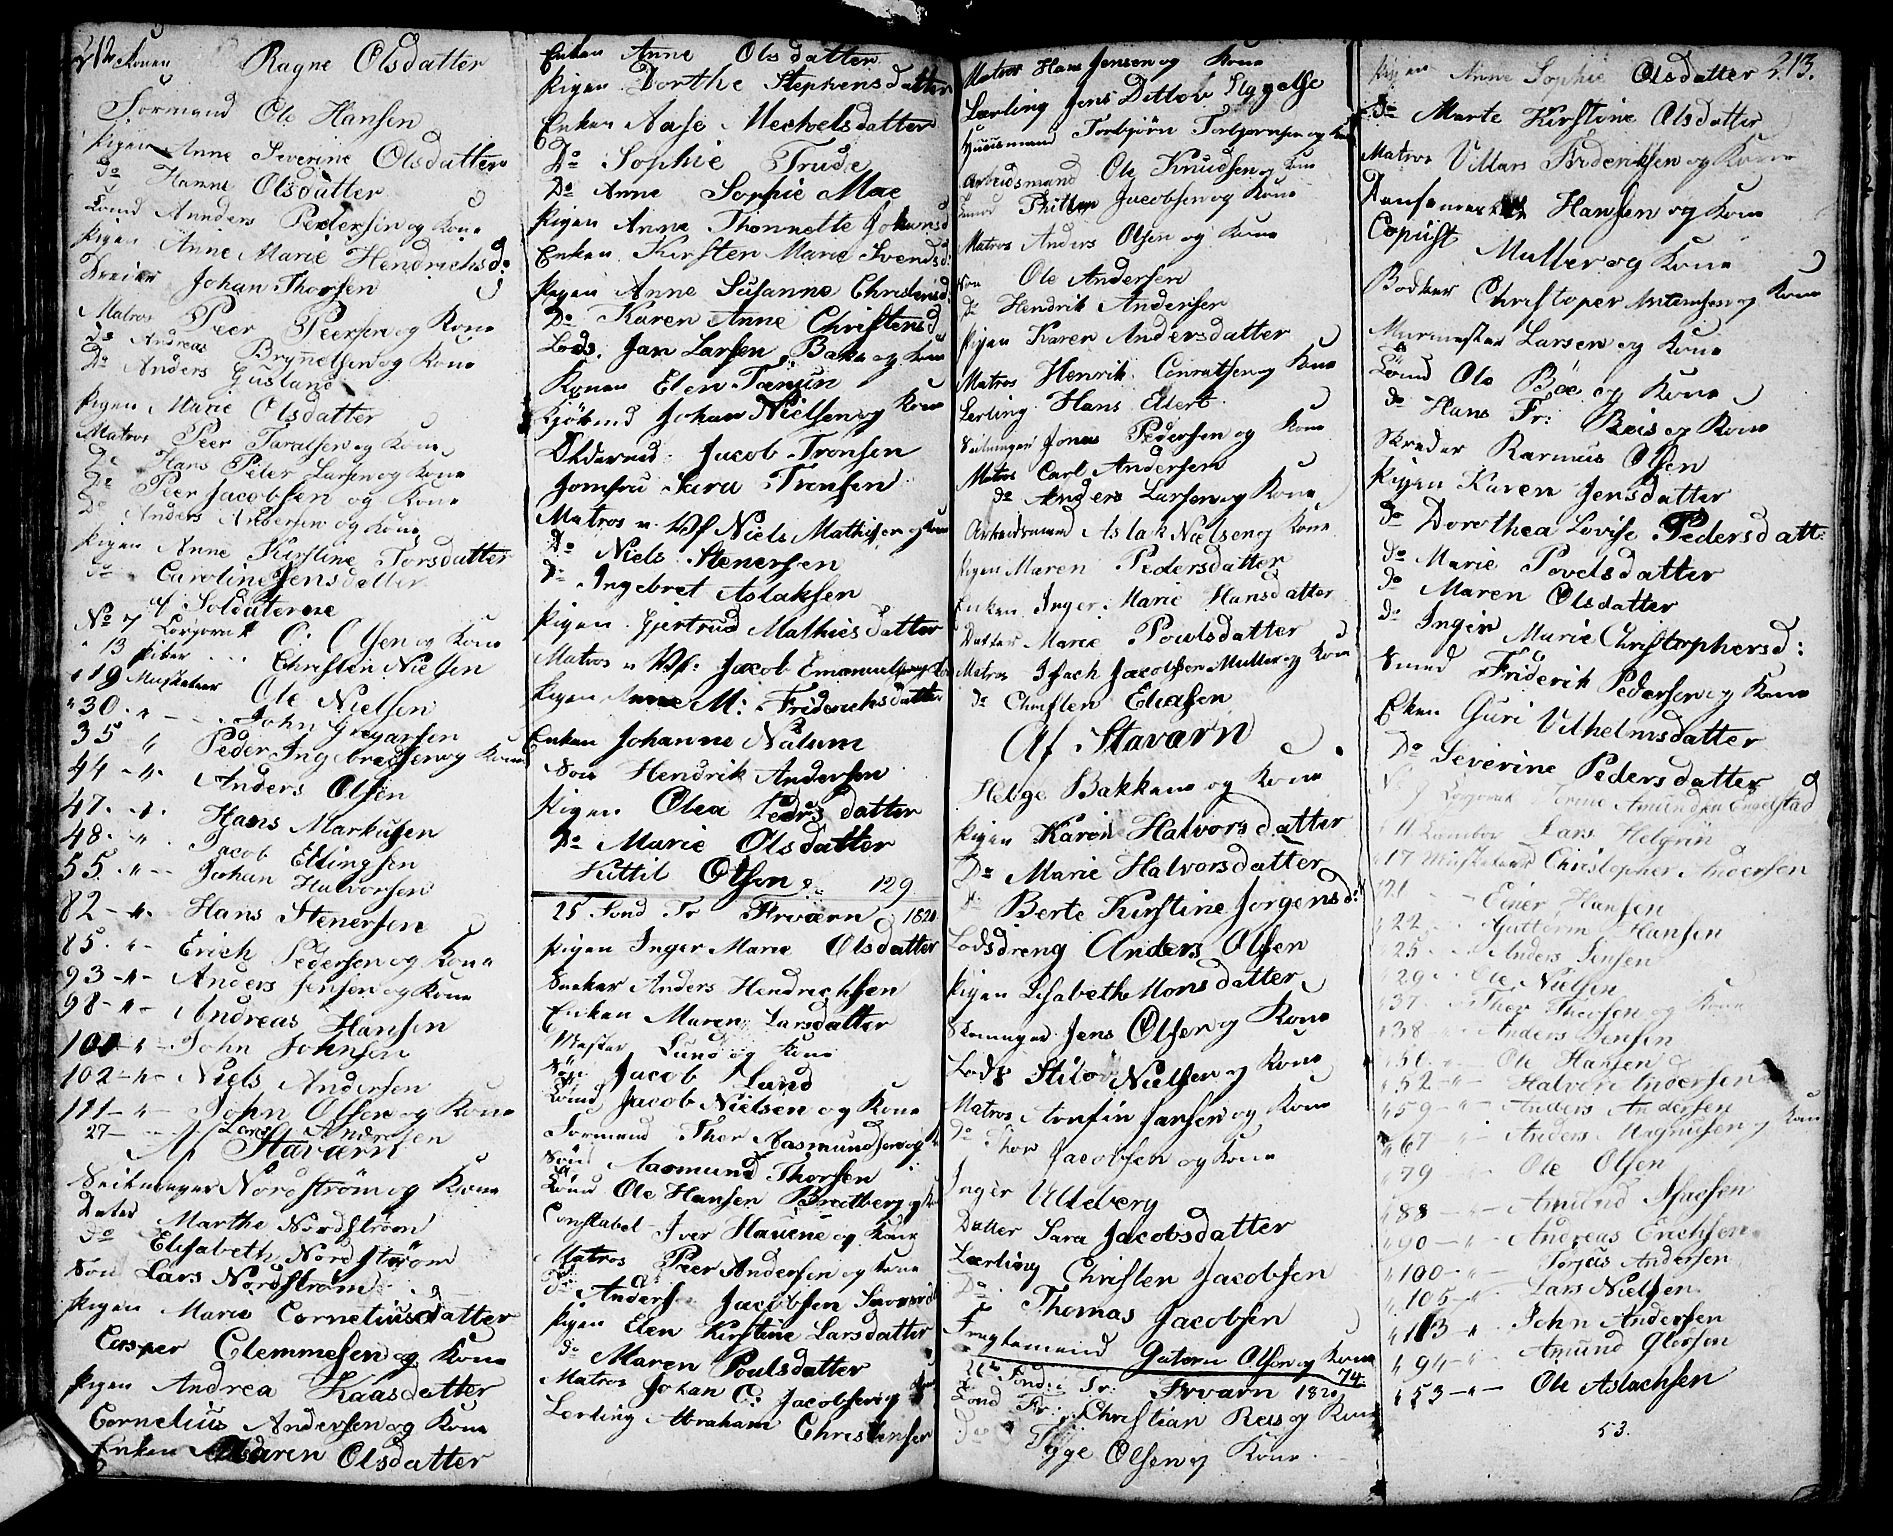 212 Konen Ragne Olsdatter
Formand Ole Hansen
Pigen Anne Severine Olsdatter
Do Hanne Olsdatter
Lond Annders Pedersen og Kone
Pigen Anne Marie Hendrichsd:
Dreier Johan Thorsen
Matros Peer Peersen og Kone
Do Andreas Brynnelsen og Kone
Do Anders Gusland
Pigen Marie Olsdatter
Matros Peer Taralsen og Kone
Do Hans Peter Larsen og Kone
Do Peer Jacobsen og Kone
Do Anders Andersen og Kone
Pigen Anne Kirstine Torsdatter
do Caroline Jensdatter
af Soldaterne
No 7 Corporal O: Olsen og Kone
" 13 Piber Christen Nielsen
" 19 Musketeer Ole Nielsen
" 30 - " - John Gregarsen
35 " Peder Ingebretsen og Kone
44 - " - Anders Olsen
47 - " - Hans Markusen
48 - " Jacob Ellingsen
55 - " - Johan Halvorsen
82 - " - Hans Stenersen
85 - " - Erich Pedersen og Kone
93 - " - Anders Jensen og Kone
98 - " - Andreas Hansen
101 - " - John Johnsen
102 - " - Niels Andersen
111 - " - John Olsen og Kone
27 - Lars Andersen
Af Staværn
Seilmager Nordstrøm og Kone
Dater Marthe Nordstrøm
Do Elisabeth Nordstrøm
Søn Lars Nordstrøm
Pigen Marie Corneliusdatter
Casper Clemmesen og Kone
Pigen Andrea Kaasdatter
Cornelius Andersen og Kone
Enken Maren Olsdatter
Enken Anne Olsdatter
Pigen Dorthe Stephensdatter
Enken Aase Mechelsdatter
Do Sophie Trude
Do Anne Sophie Moe
Pigen Anne Thonnette Johansd
Enken Kirsten Marie Svendsd:
Pigen Anne Susanne Christensd
Do Karen Anne Christensd
Lods. Jan Larsen Bake og Kone
Konen Elen
Johan Nielsen og Kone
Oldermd: Jacob Tronsen
Jomfru Sara Tronsen
Matros v. Vf Niels Mathisen og Kone
Do Niels Stenersen
Do Ingebret Aslaksen
Pigen Gjertrud Mathiesdatter
Matros v Vf: Jacob Emanuelsen og Kone
Pigen Anne M: Friderichsdatter
Enken Johanne Nalum
Søn Hendrik Andersen
Pigen Olea Pedersdatter
Do Marie Olsdatter
Kittil Olsen 129
25 Sønd Tr Frværn 1820
Pigen Inger Marie Olsdatter
Sneker Anders Hendrichsen
Enken Maren Larsdatter
Mester Lund og Kone
Søn Jacob Lund
Lond Jacob Nielsen og Kone
Formand Thor Aasmundsen og K
Søn Aasmund Thorsen
Lond Ole Hansen Bredberg og K
Constabel Iver Hauene og Kone
Matros Peer Andersen og Kone
Do Anders Jacobsen
Pigen Elen Kirstine Larsdatter
do Maren Poulsdatter
Matros Johan C: Jacobsen og Kone
Lerling Abraham Christensen
Matros Hans Jensen og Kone
Lærling Jens Ditlev Ryggelse
Huusmand Torbjørn Torbjørnsen og Kone
Arbeidsmand Ole Knudsen og Kone
Jacobsen og Kone
Matros Anders Olsen og Kone
Søn Ole Andersen
Do Hendrik Andersen
Pigen Karen Andersdatter
Matros Henrik Conratsen og Kone
Lerling Hans Edert
Seilmager Jonas Pedersen og Kone
Matros Carl Andersen
do Anders Larsen og Kone
Arbeidsmand Aslak Nielsen og Kone
Pigen Maren Pedersdatter
Enken Inger Marie Hansdatter
Datter Marie Powlsdatter
Matros Isach Jacobsen Muller og Kone
Do Christen Eliasen
Af Staværn
Helge Bakkene og Kone
Pigen Karen Halvorsdatter
Do Marie Halvorsdatter
Do Berte Kirstine Jørgensd:
Lodsdreng Anders Olsen
Pigen Lisabeth Monsdatter
Skomager Jens Olsen og Kone
Lods Nielsen og Kone
Matros Arnfin Jansen og Kone
Do Thor Jacobsen og Kone
Inger Uleberg
Datter Sara Jacobsdatter
Lærling Christen Jacobsen
Do Thomas Jacobsen
Fregtemand Gutorm Olsen og Kone
74
26de Sønd: Tr: Frværn 1820
Lond Fr: Christian Reis og Kone
Do Tygge Olsen og Kone
Pigen Anne Sophie Olsdatter 213.
Do Marte Kirstine Olsdatter
Matros Villars Frideriksen og Kone
Hansen og Kone
Copiist Muller og Kone
Bødker Christoper Antonisen og Kone
Murmester Larsen og Kone
Lond Ole Bøe og Kone
do Hans Fr: Reis og Kone
Skreder Rasmus Olsen
Pigen Karen Jensdatter
Do Dorothea Lovise Pedersdatt:
do Marie Povelsdatter
do Maren Olsdatter
do Inger Marie Christophersd:
Smed Friderik Pedersen og Kone
Eken Guri Vilhelmsdatter
Do Severine Pedersdatter
No 9 Corporal Amundsen Engelstad
" 11 Tambor Lars Helgrin
" 17 Musketeer Christopher Andersen
" 21 - Einer Hansen
" 22 Guttorm Hansen
" 25 Anders Jensen
" 29 Ole Nielsen
" 37 Thor Theosen og Kone
" 38 Anders Jensen
" 51 Ole Hansen
" 52 - " - Halvor Andersen
" 59 - " - Anders Andersen
" 67 " Anders Magnusen og Kone
" 79 - Ole Olsen
" 88 - " - Amund Isachsen
" 90 - " - Andreas Erichsen
" 100 - " - Torjus Andersen
" 105 - " - Lars Nielsen
" 113 - " John Andersen
" 94 - " - Amund Olersen
" 53 - " - Ole Aslachsen
53.